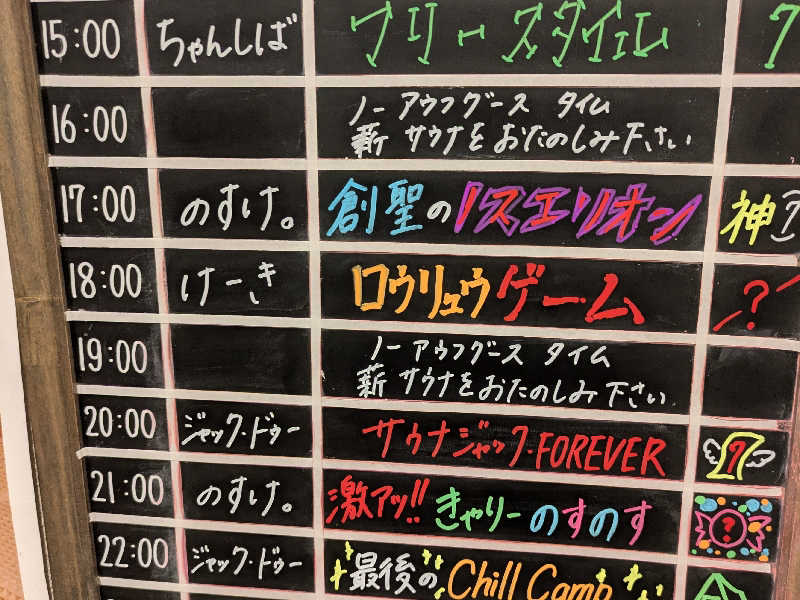 15:00 ちゃんしば フリースタイル 7
16:00 ノーアウフグース タイム
薪 サウナをおたのしみ下さい
17:00 のすけ。 創聖のノスエリオン 神
18:00 けーき ロウリュウゲーム ?
19:00 ノーアウフグース タイム
薪 サウナをおたのしみ下さい
20:00 ジャック・ドゥー サウナジャック・FOREVER ?
21:00 のすけ。 激アツ!! きゃりーのすのす ?
22:00 ジャック・ドゥー 最後のChill Camp